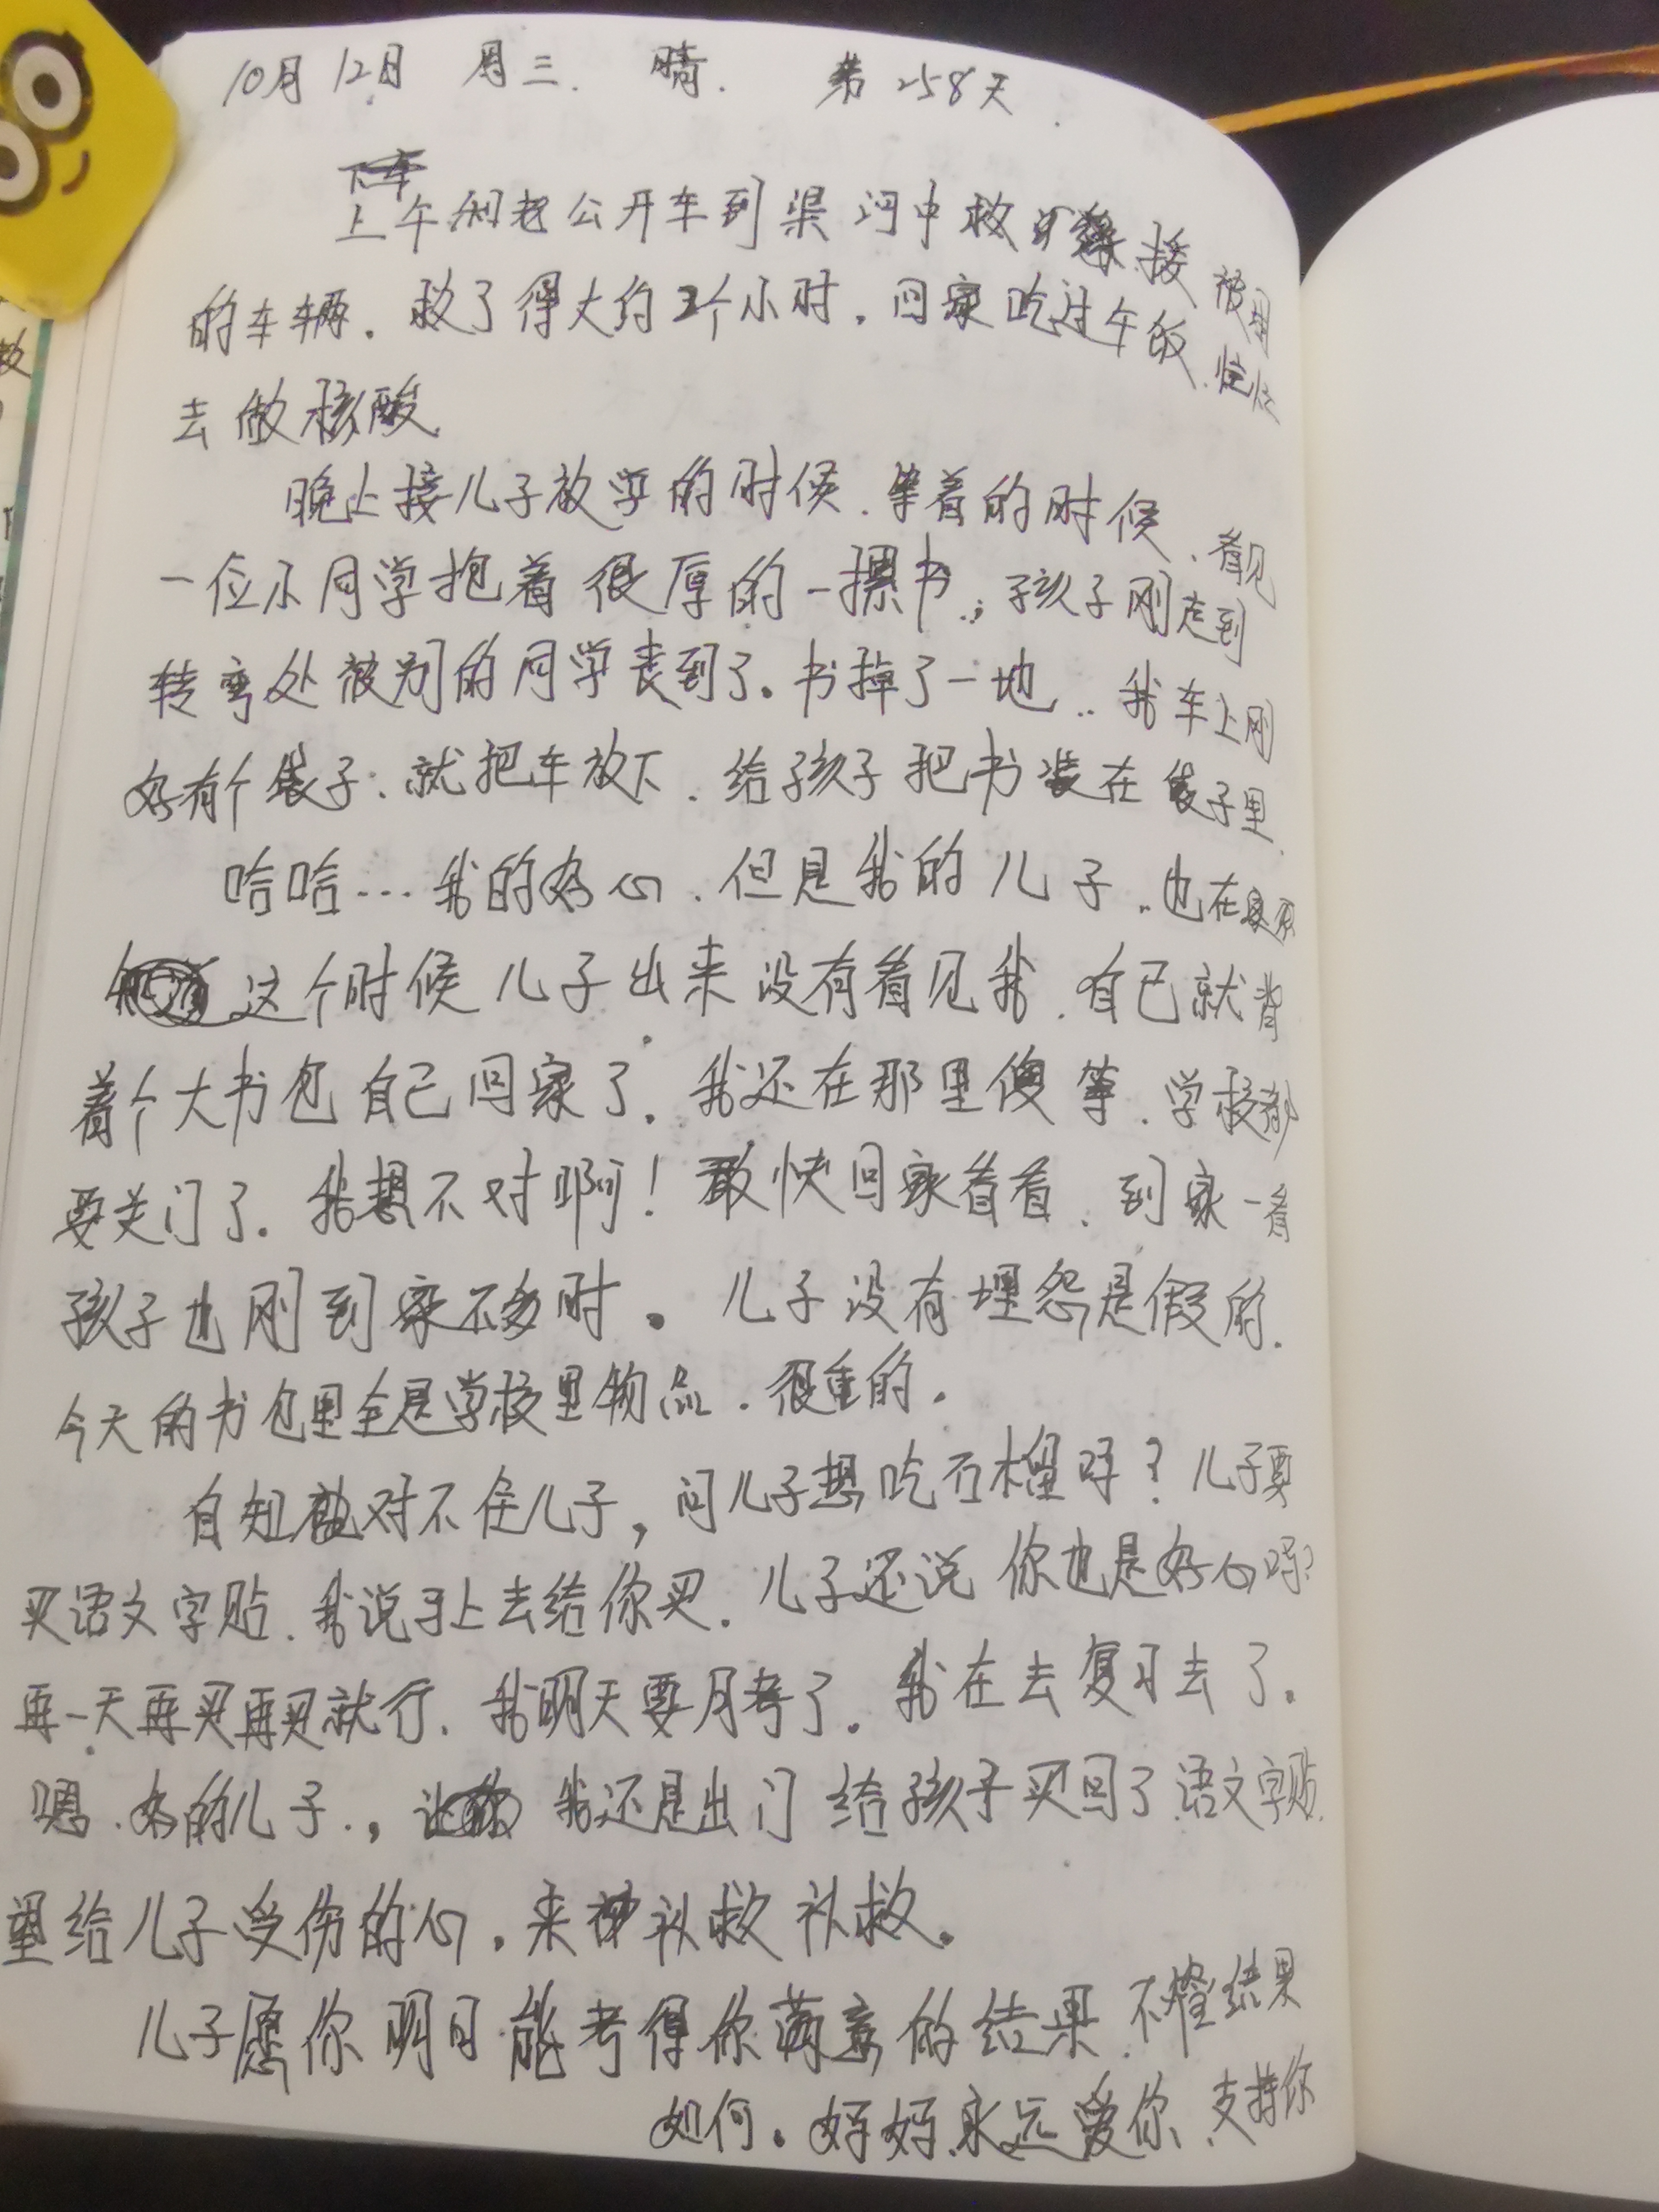 10月12日 周三. 晴. 第258天.
上午和老公开车到渠河中救 接被困
的车辆. 救了得大约2个小时. 回家吃过午饭.
去做核酸
晚上接儿子放学的时候. 等着的时候. 看见
一位小同学抱着很厚的一摞书., 孩子刚走到
转弯处被别的同学丧到了。书掉了一地.. 我车上刚
好有个袋子. 就把车放下. 给孩子把书装在袋子里.
哈哈... 我的好心. 但是我的儿子.. 也在
这个时候儿子出来没有看见我. 自己就背
着个大书包自己回家了. 我还在那里傻等. 学校都
要关门了. 我想不对啊! 敢快回家看看. 到家一看
孩子也刚到家不多时。儿子没有埋怨是假的.
今天的书包里全是学校里物品. 很重的.
自知对不住儿子, 问儿子想吃石榴吗? 儿子要
买语文字贴. 我说马上去给你买. 儿子还说你也是好心吗?
再一天再买再买就行. 我明天要月考了。我在去复习去了.
嗯. 好的儿子., 我还是出门给孩子买回了语文字贴.
望给儿子受伤的心. 来补救补救。
儿子愿你明日能考得你满意的结果. 不管结果
如何。妈妈永远爱你. 支持你